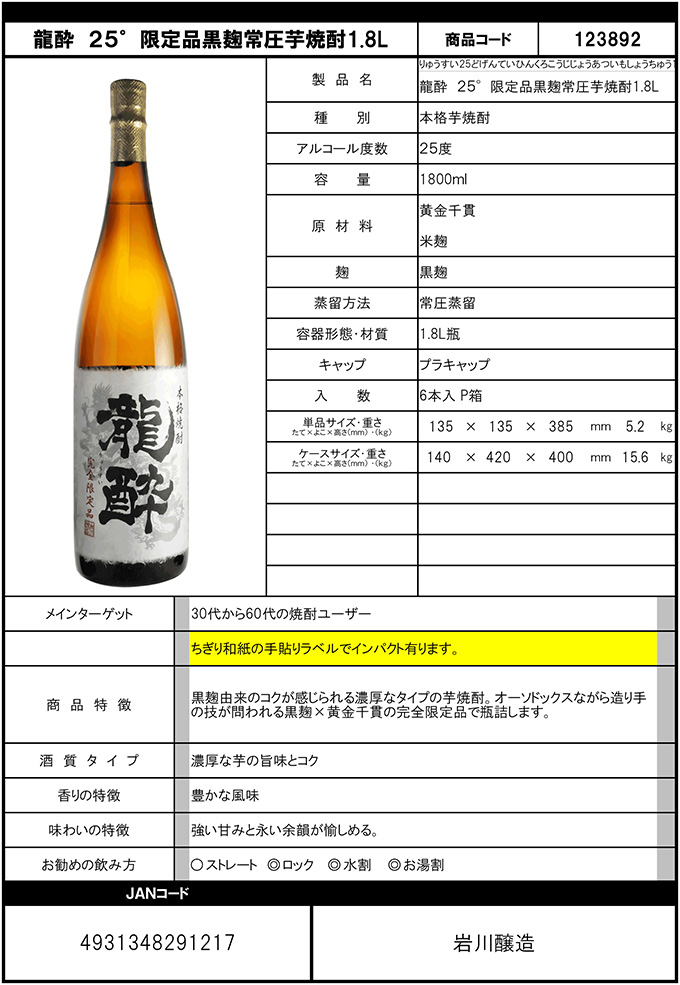 龍酔　２５°限定品黒麹常圧芋焼酎1.8L
商品コード
123892
製品名
りゅうすい25どげんていひんくろこうじじょうあついもしょうちゅう1
龍酔　２５°限定品黒麹常圧芋焼酎1.8L
種別
本格芋焼酎
アルコール度数
25度
容量
1800ml
原材料
黄金千貫
米麹
麹
黒麹
蒸留方法
常圧蒸留
容器形態・材質
1.8L瓶
キャップ
プラキャップ
入数
6本入 P箱
単品サイズ・重さ
たて×よこ×高さ(mm)・(kg)
135 × 135 × 385 mm 5.2 kg
ケースサイズ・重さ
たて×よこ×高さ(mm)・(kg)
140 × 420 × 400 mm 15.6 kg
本格焼酎
龍酔
完全限定品
メインターゲット
30代から60代の焼酎ユーザー
ちぎり和紙の手貼りラベルでインパクト有ります。
商品特徴
黒麹由来のコクが感じられる濃厚なタイプの芋焼酎。オーソドックスながら造り手
の技が問われる黒麹×黄金千貫の完全限定品で瓶詰します。
酒質タイプ
濃厚な芋の旨味とコク
香りの特徴
豊かな風味
味わいの特徴
強い甘みと永い余韻が愉しめる。
お勧めの飲み方
○ストレート ◎ロック ◎水割 ◎お湯割
JANコード
4931348291217
岩川醸造